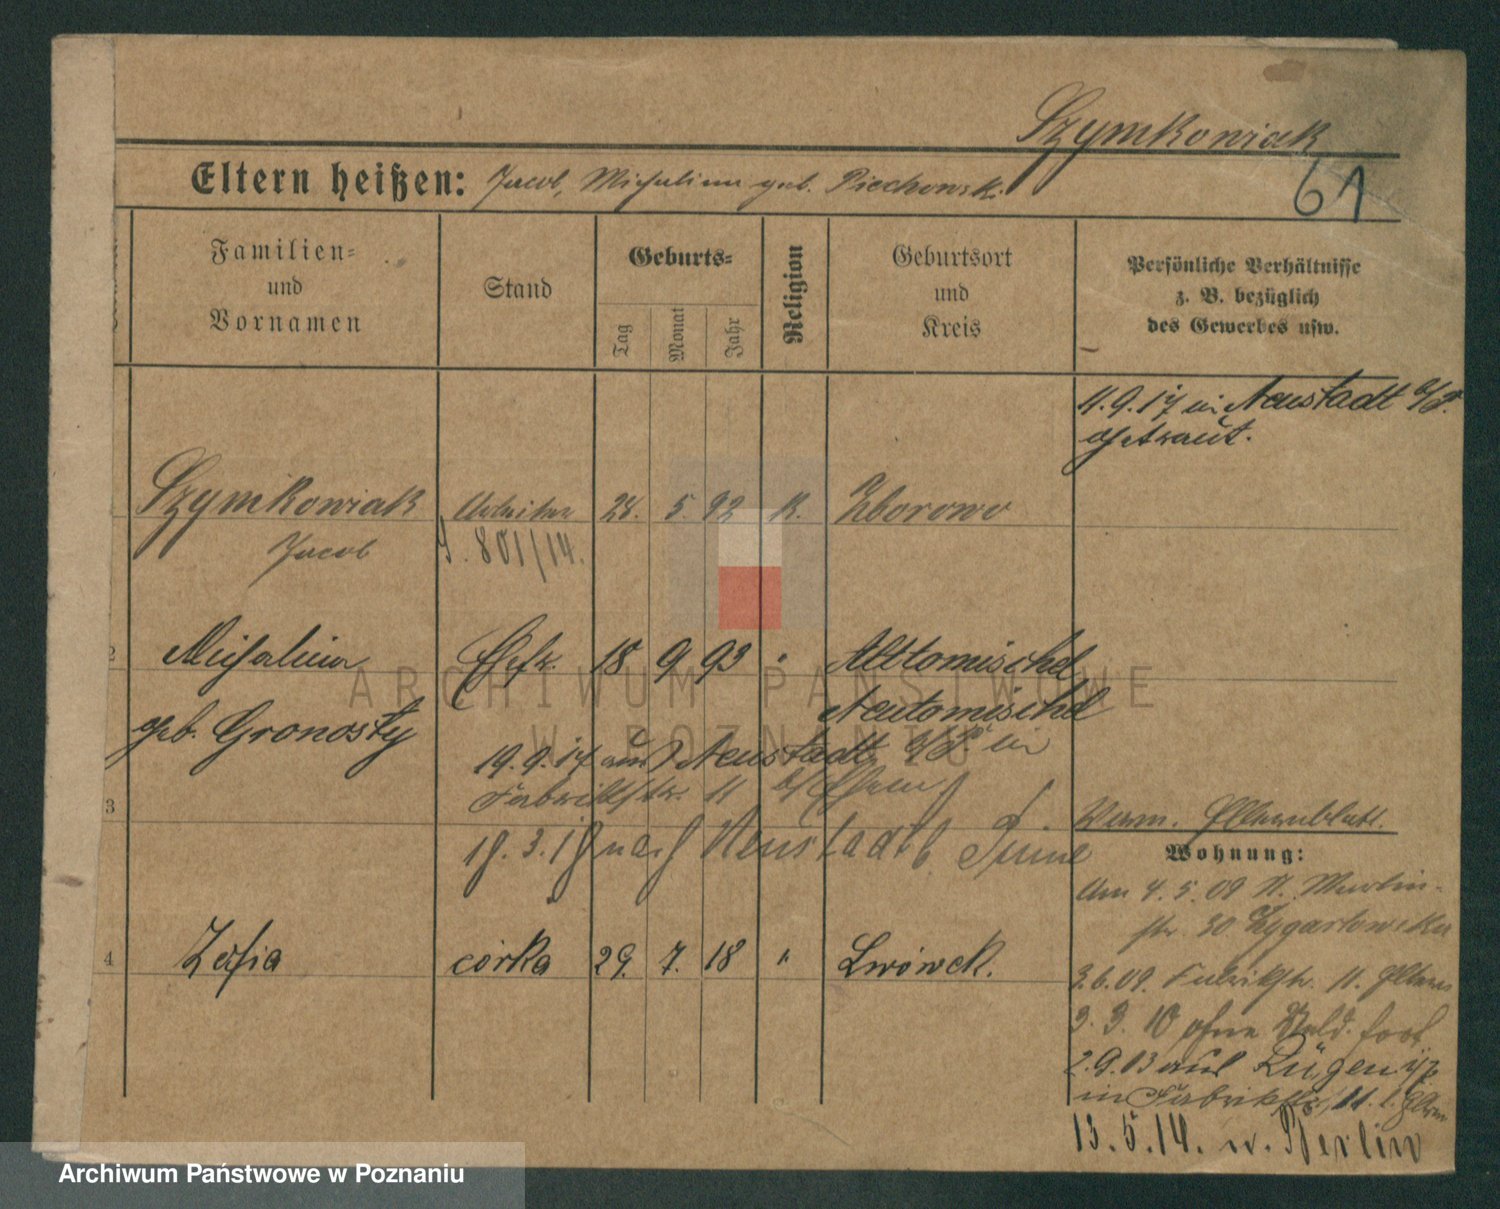 Szymkowiak
Eltern heißen: Jacob, Michalina geb. Piechowsk.
61
Familien= und Vornamen
Stand
Geburts=
Tag
Monat
Jahr
Religion
Geburtsort und Kreis
Persönliche Verhältnisse
z. B. bezüglich
des Gewerbes usw.
11.9.17 in Neustadt b/P.
getraut.
Szymkowiak Arbeiter 24. 5. 92 K. Zborowo
Jacob
J. 801/14.
2 Michalina Ehefr. 18 9 93 " Alttomischel
geb. Gronosty Neutomischel
19.9.17 aus Neustadt b/P. in
Fabrikstr. 11 b/Eltern
3
19.3.19 nach Neustadt b. Pinne
Verm. Elternblatt.
Wohnung:
Am 4.5.09 St. Martin-
str. 30
4 Zofia córka 29. 7. 18 " Lwówek.
3.6.09. Fabrikstr. 11. Eltern
3. 3. 10 ohne fort
2.9.13 aus Rügen
in Fabrikstr. 11. b. Eltern
13.5.14. n. Berlin
ARCHIWUM PAŃSTWOWE
W POZNANIU
Archiwum Państwowe w Poznaniu